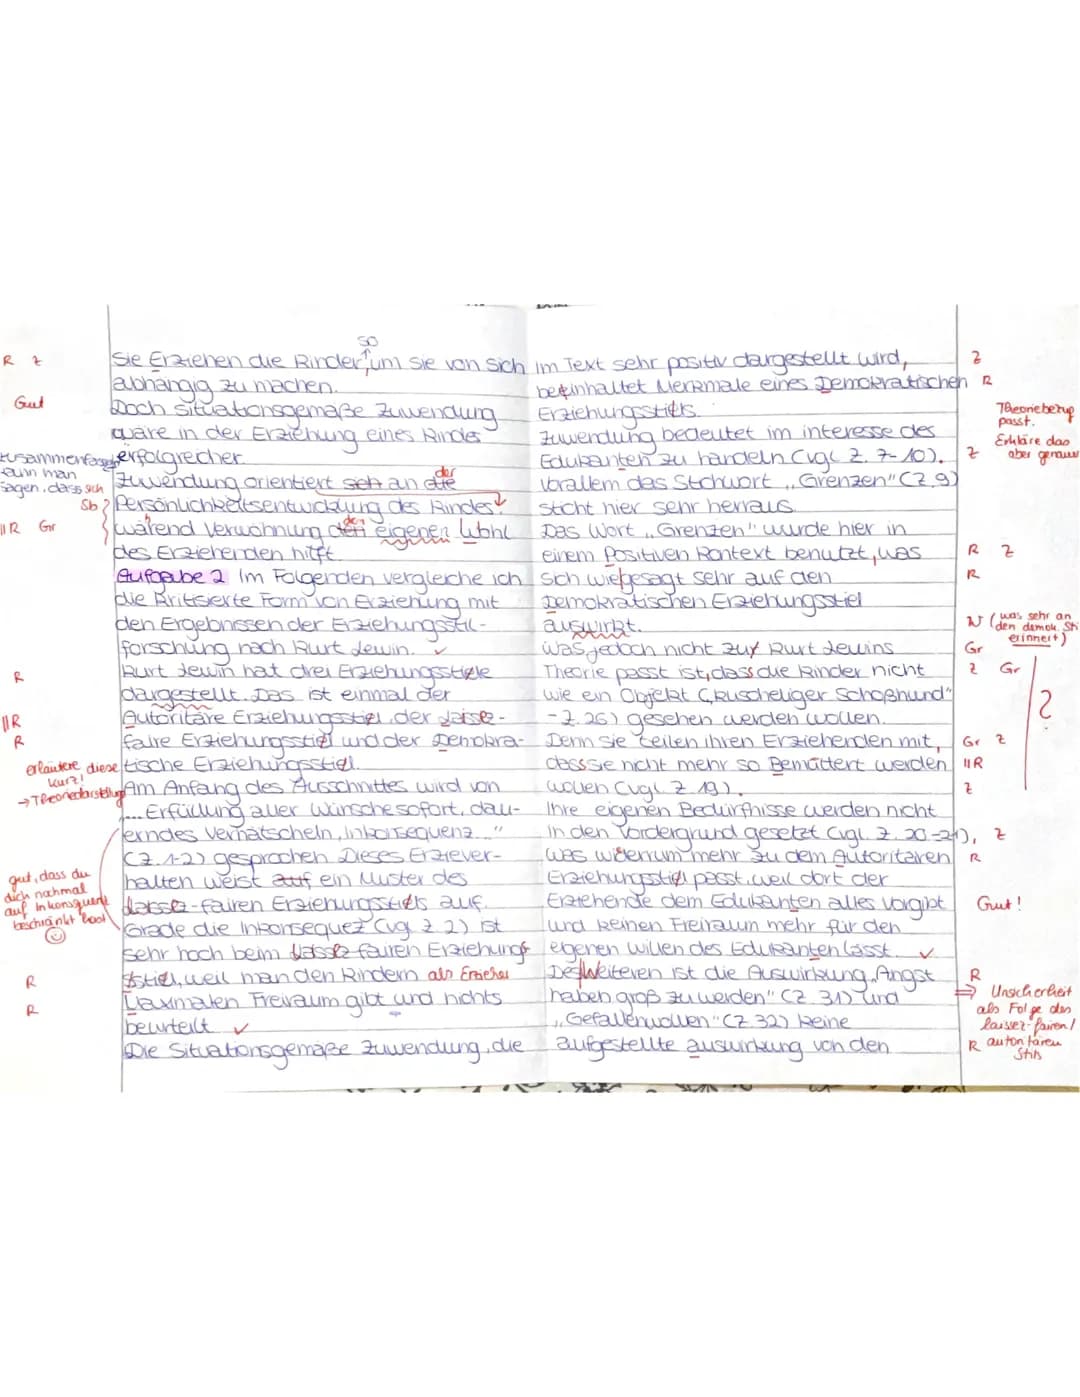 so
Sie Erziehen die Kinder, um sie von sich
abhängig zu machen.
Doch situationsgemäße Zuwendung
wäre in der Erziehung eines Kindes
erfolgreicher.
Zuwendung orientiert seh an die
der
Persönlichkeitsentwicklung des Kindes,
wärend Verwöhnung den eigenen Wohl
des Erziehenden hilft.
Aufgabe 2 Im Folgenden vergleiche ich
die Kritisierte Form von Erziehung mit
den Ergebnissen der Erziehungsstil-
forschung nach Kurt Lewin. ✓
Kurt Lewin hat drei Erziehungsstiele
dargestellt. Das ist einmal der
Autoritäre Erziehungsstiel, der
faire Erziehungsstiel und der Demokra-
tische Erziehungsstiel.
Am Anfang des Ausschnittes wird von
„... Erfüllung aller Wünsche sofort, dau-
erndes Verhätscheln, Inkonsequenz..."
(Z. 1-2) gesprochen. Dieses Erziever-
halten weist auf ein Muster des
fairen Erziehungsstiels auf.
Grade die Inkonsequez (vgl. Z. 2) ist
sehr hoch beim fairen Erziehungs
stiel, weil man den Kindern als Erzieher
Maximalen Freiraum gibt und nichts
beurteilt. ✓
Die Situationsgemäße Zuwendung, die
im Text sehr positiv dargestellt wird,
beeinhaltet Merkmale eines Demokratischen
Erziehungsstiels.
Zuwendung bedeutet im interesse des
Edukanten zu handeln (vgl. Z. 7-10).
Vorallem das Stichwort „Grenzen" (Z. 9)
sticht hier sehr herraus.
Das Wort „Grenzen" wurde hier in
einem Positiven Kontext benutzt, was
sich wiegesagt sehr auf den
Demokratischen Erziehungsstiel
auswirkt.
Was jedoch nicht zur Kurt Lewins
Theorie passt ist, dass die Kinder nicht
wie ein Objekt („kuscheliger Schoßhund"
- Z. 26) gesehen werden wollen.
Denn sie teilen ihren Erziehenden mit,
dass sie nicht mehr so Bemuttert werden
wollen (vgl. Z. 19).
Ihre eigenen Bedürfnisse werden nicht
in den Vordergrund gesetzt (vgl. Z. 20-21),
was wiederrum mehr zu dem Autoritären
Erziehungsstiel passt, weil dort der
Erziehende dem Edukanten alles vorgibt
und keinen Freiraum mehr für den
eigenen willen des Edukanten lässt. ✓
Des Weiteren ist die Auswirkung „Angst
haben groß zu werden" (Z. 31) und
„Gefallenwollen" (Z. 32) keine
aufgestellte auswirkung von den
R Z
Gut
zusammenfassend
kann man
sagen, dass sich
Sb
||R Gr
R
||R
R
erläutere diese
kurz!
→ Theoriedarstellung
gut, dass du
dich nahmal
auf Inkonsequenz
beschränkt hast
☺
R
R
Z
R
Theoriebezug
passt.
Erkläre das
Z aber genauer
R Z
R
W (was sehr an
den demok. Stil
erinnert)
Gr
Z Gr
?
Gr Z
||R
Z
Z
R
Gut!
R
⇒ Unsicherheit
als Folge des
laissez-fairen/
R autoritären
Stils